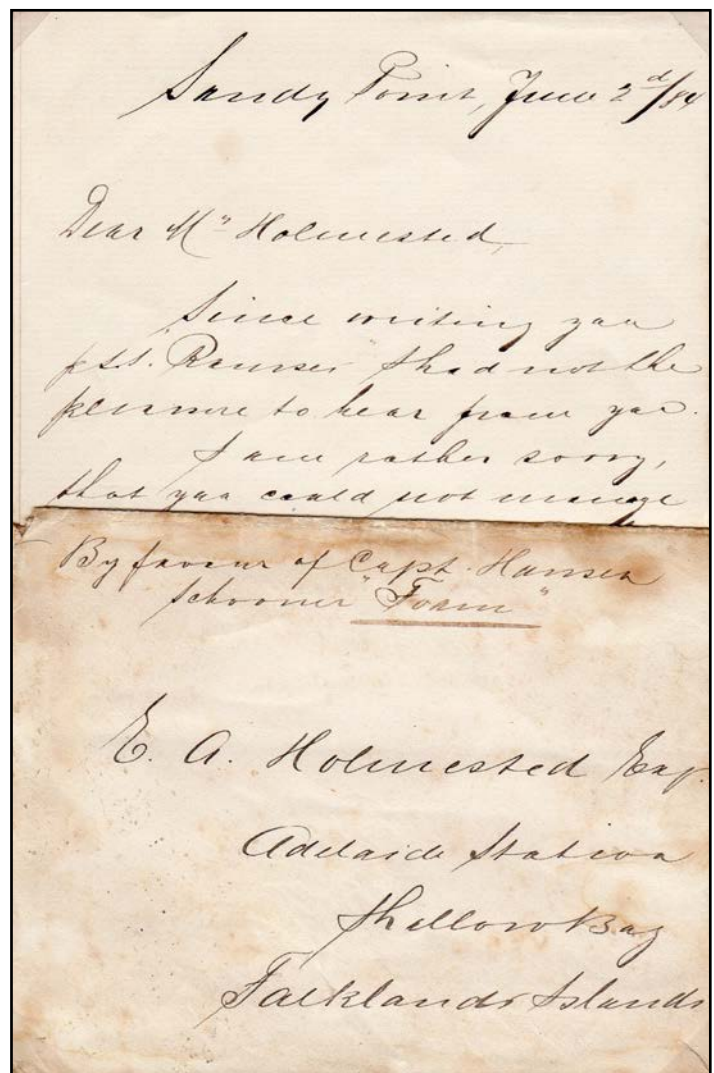 Sandy Point, June 2d/84
Dear Mr Holmested,
Since writing you
p s.s. "Ramses" I had not the
pleasure to hear from you.
I am rather sorry,
that you could not manage
By favour of Capt. Hansen
Schooner "Foam"
E. A. Holmested Esq.
Adelaide Station
Shallow Bay
Falklands Islands